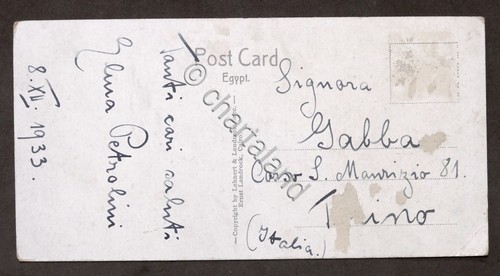 Post Card
Egypt.
© chartaland
Tanti cari saluti
Elena Petrolini
8. XII. 1933.
Copyright by Lehnert & Landrock, Succ.
Ernst Landrock, Cairo
Signora
Gabba
Corso S. Maurizio 81.
ino
(Italia.)